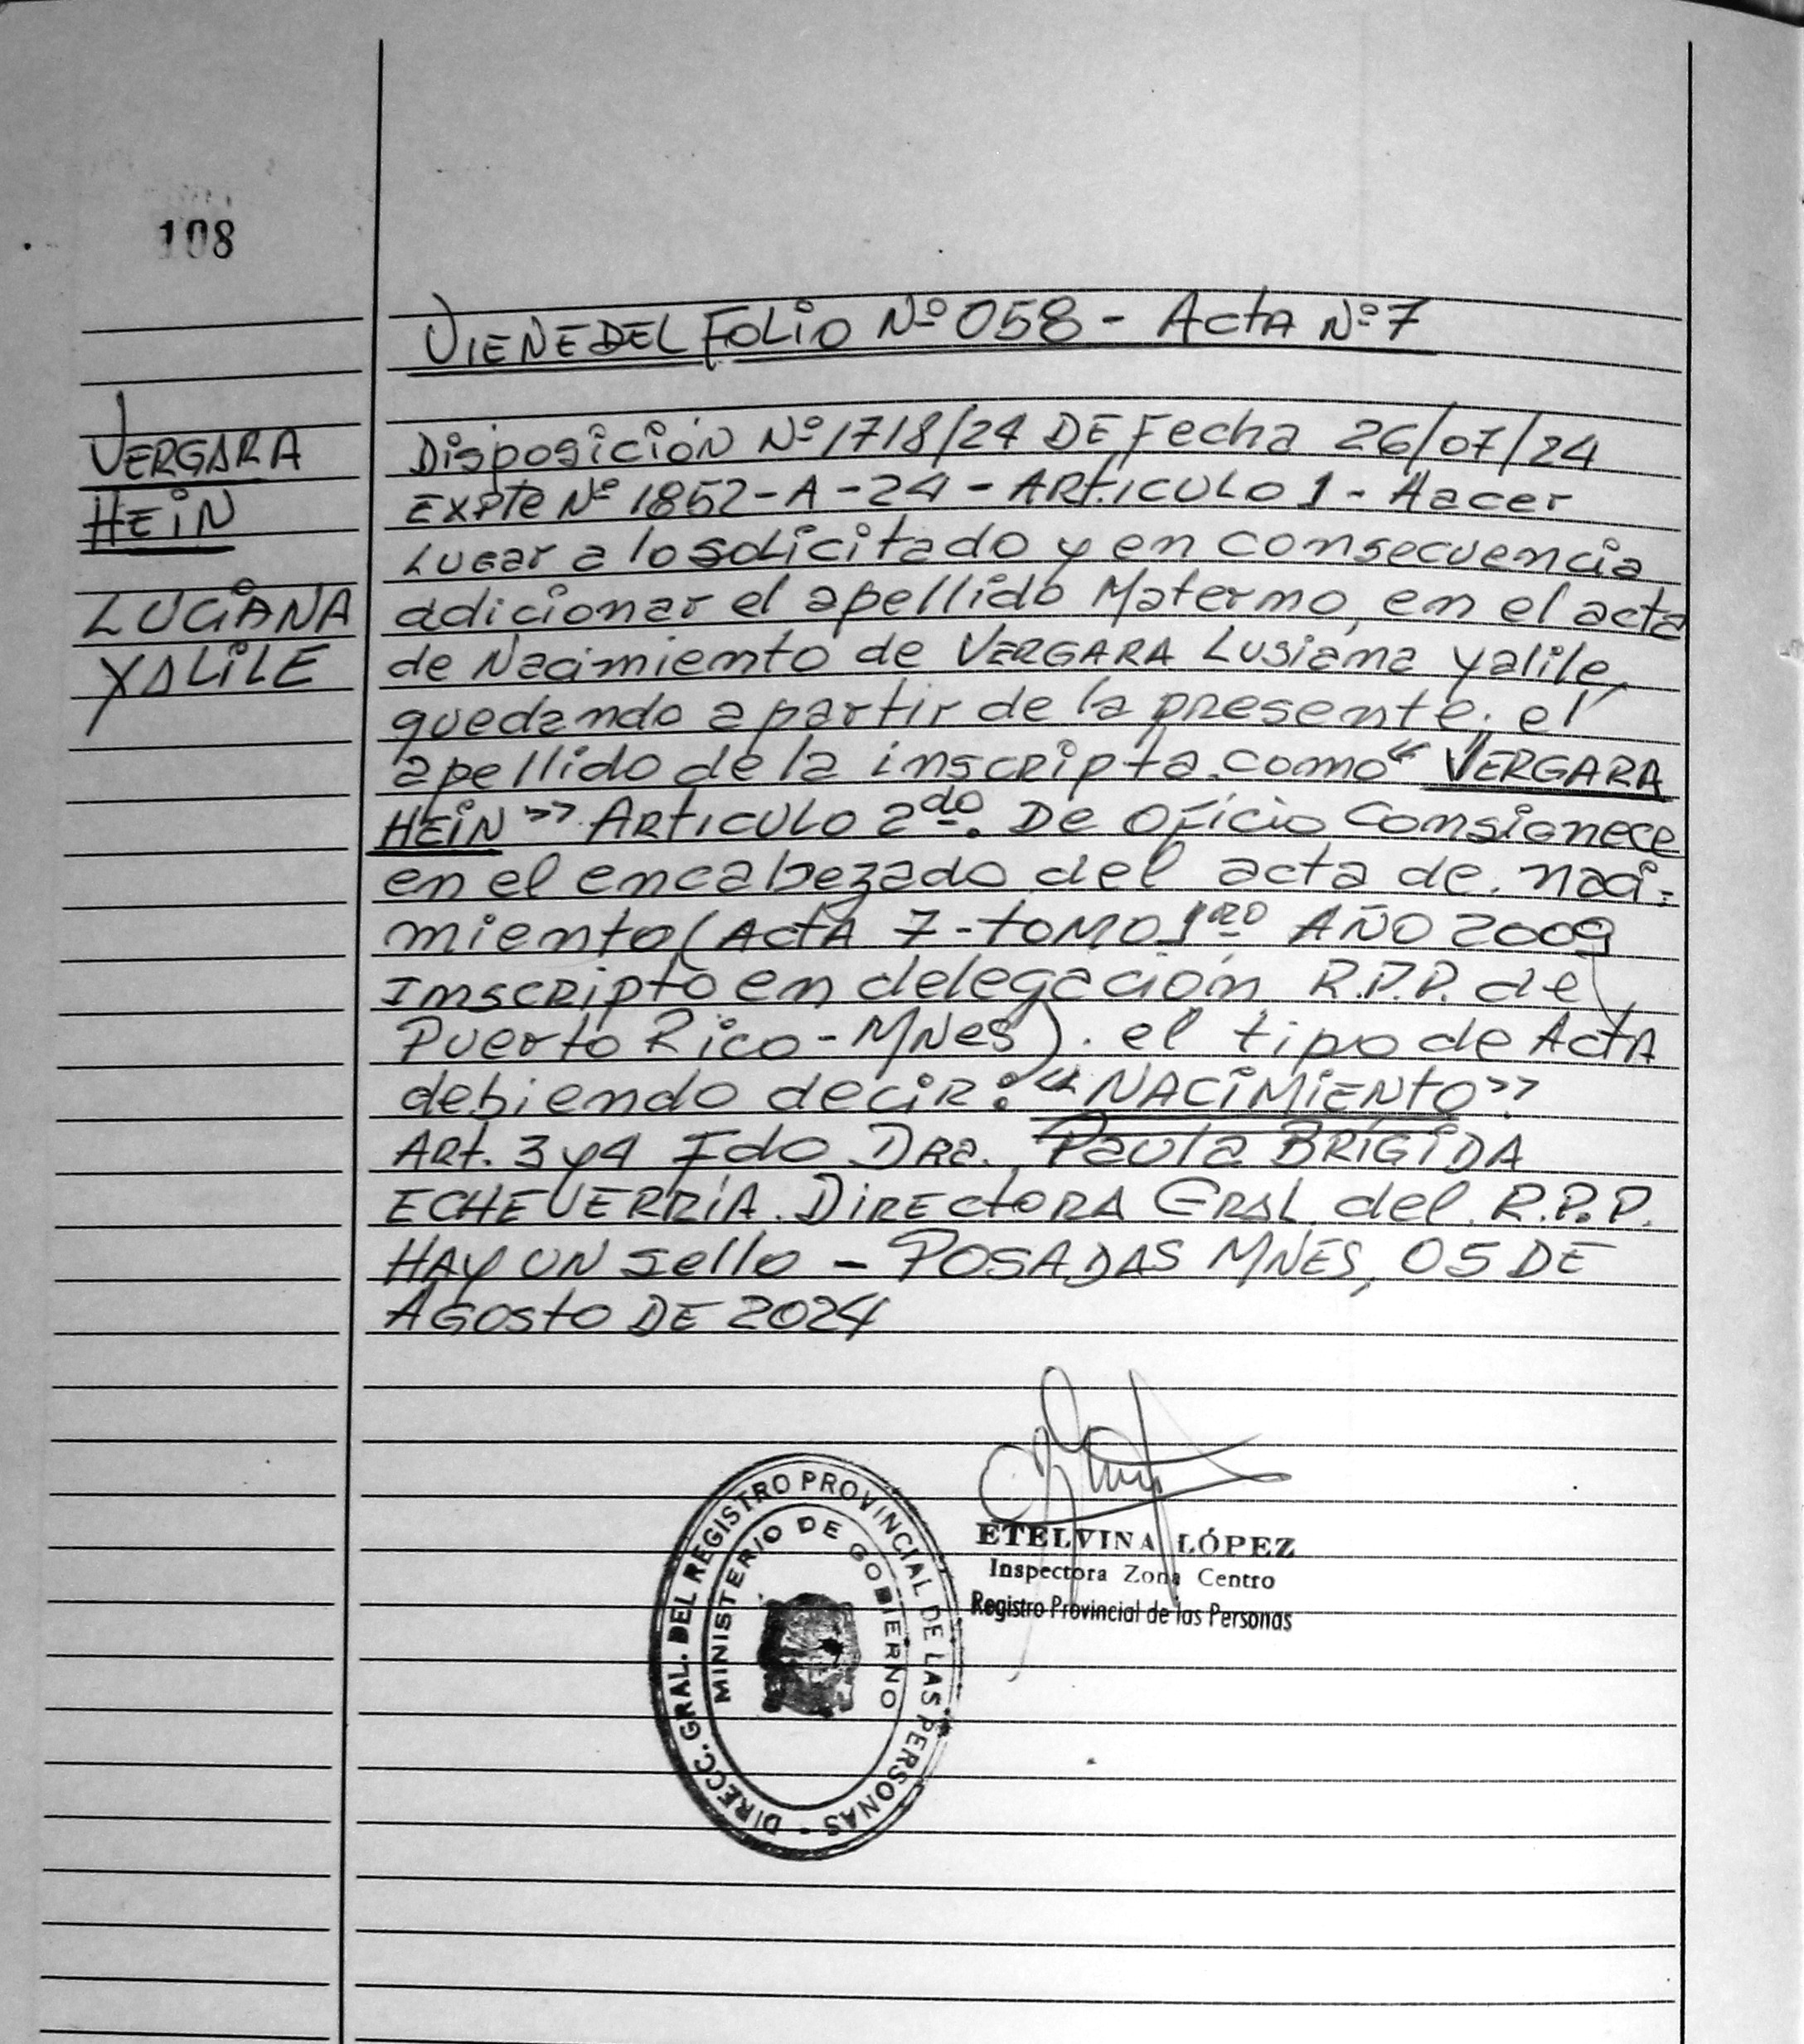 108
VIENE DEL FOLIO Nº 058 - ACTA Nº 7
VERGARA
HEIN
LUCIANA
YALILE
Disposición Nº 1718/24 DE Fecha 26/07/24
EXPTE Nº 1852-A-24 - ARTICULO 1 - Hacer
Lugar a lo solicitado y en consecuencia
adicionar el apellido Materno, en el acta
de Nacimiento de VERGARA Lusiana Yalile,
quedando a partir de la presente. el
apellido de la inscripta como " VERGARA
HEIN " ARTICULO 2do. De Oficio Consignece
en el encabezado del acta de naci-
miento (ACTA 7 - TOMO 1ro AÑO 2009
Inscripto en delegación R.P.P. de
Puerto Rico - MNes). el tipo de ActA
debiendo decir: "NACIMIENTO"
Art. 3 y 4 Fdo Dra. Paula BRÍGIDA
ECHEVERRÍA. DIRECTORA GRAL. del R.P.P.
HAY UN sello - POSADAS MNES, 05 DE
AGOSTO DE 2024
ETELVINA LÓPEZ
Inspectora Zona Centro
Registro Provincial de las Personas
DIRECC. GRAL. DEL REGISTRO PROVINCIAL DE LAS PERSONAS -
MINISTERIO DE GOBIERNO